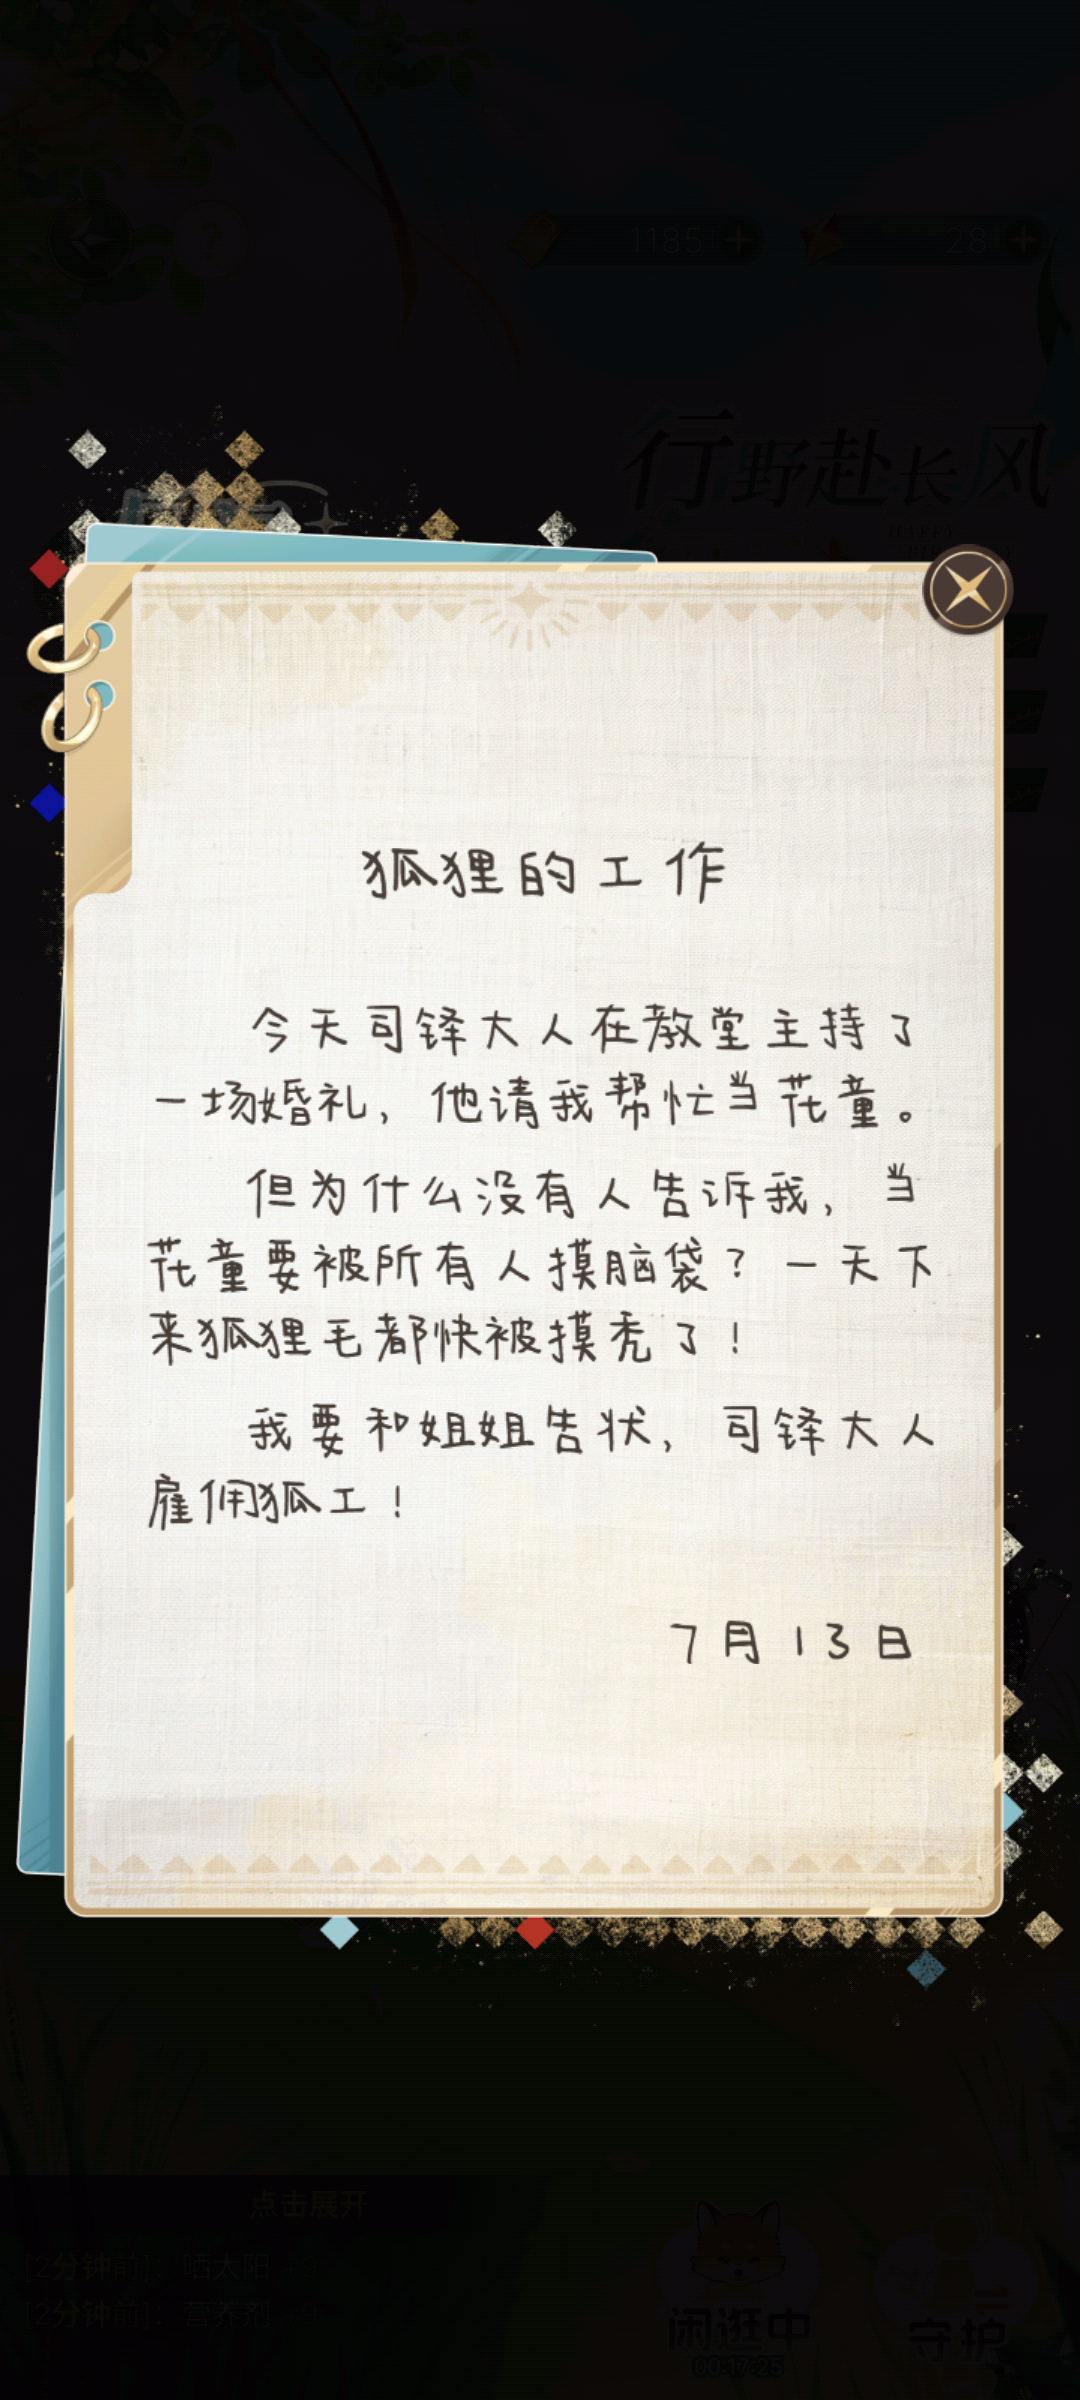 1185
28
行野赴长风
狐狸的工作
今天司铎大人在教堂主持了
一场婚礼，他请我帮忙当花童。
但为什么没有人告诉我，当
花童要被所有人摸脑袋？一天下
来狐狸毛都快被摸秃了！
我要和姐姐告状，司铎大人
雇佣狐工！
7月13日
点击展开
[2分钟前]：晒太阳 +9
[2分钟前]：营养剂 +9
闲逛中
守护
00:17:25